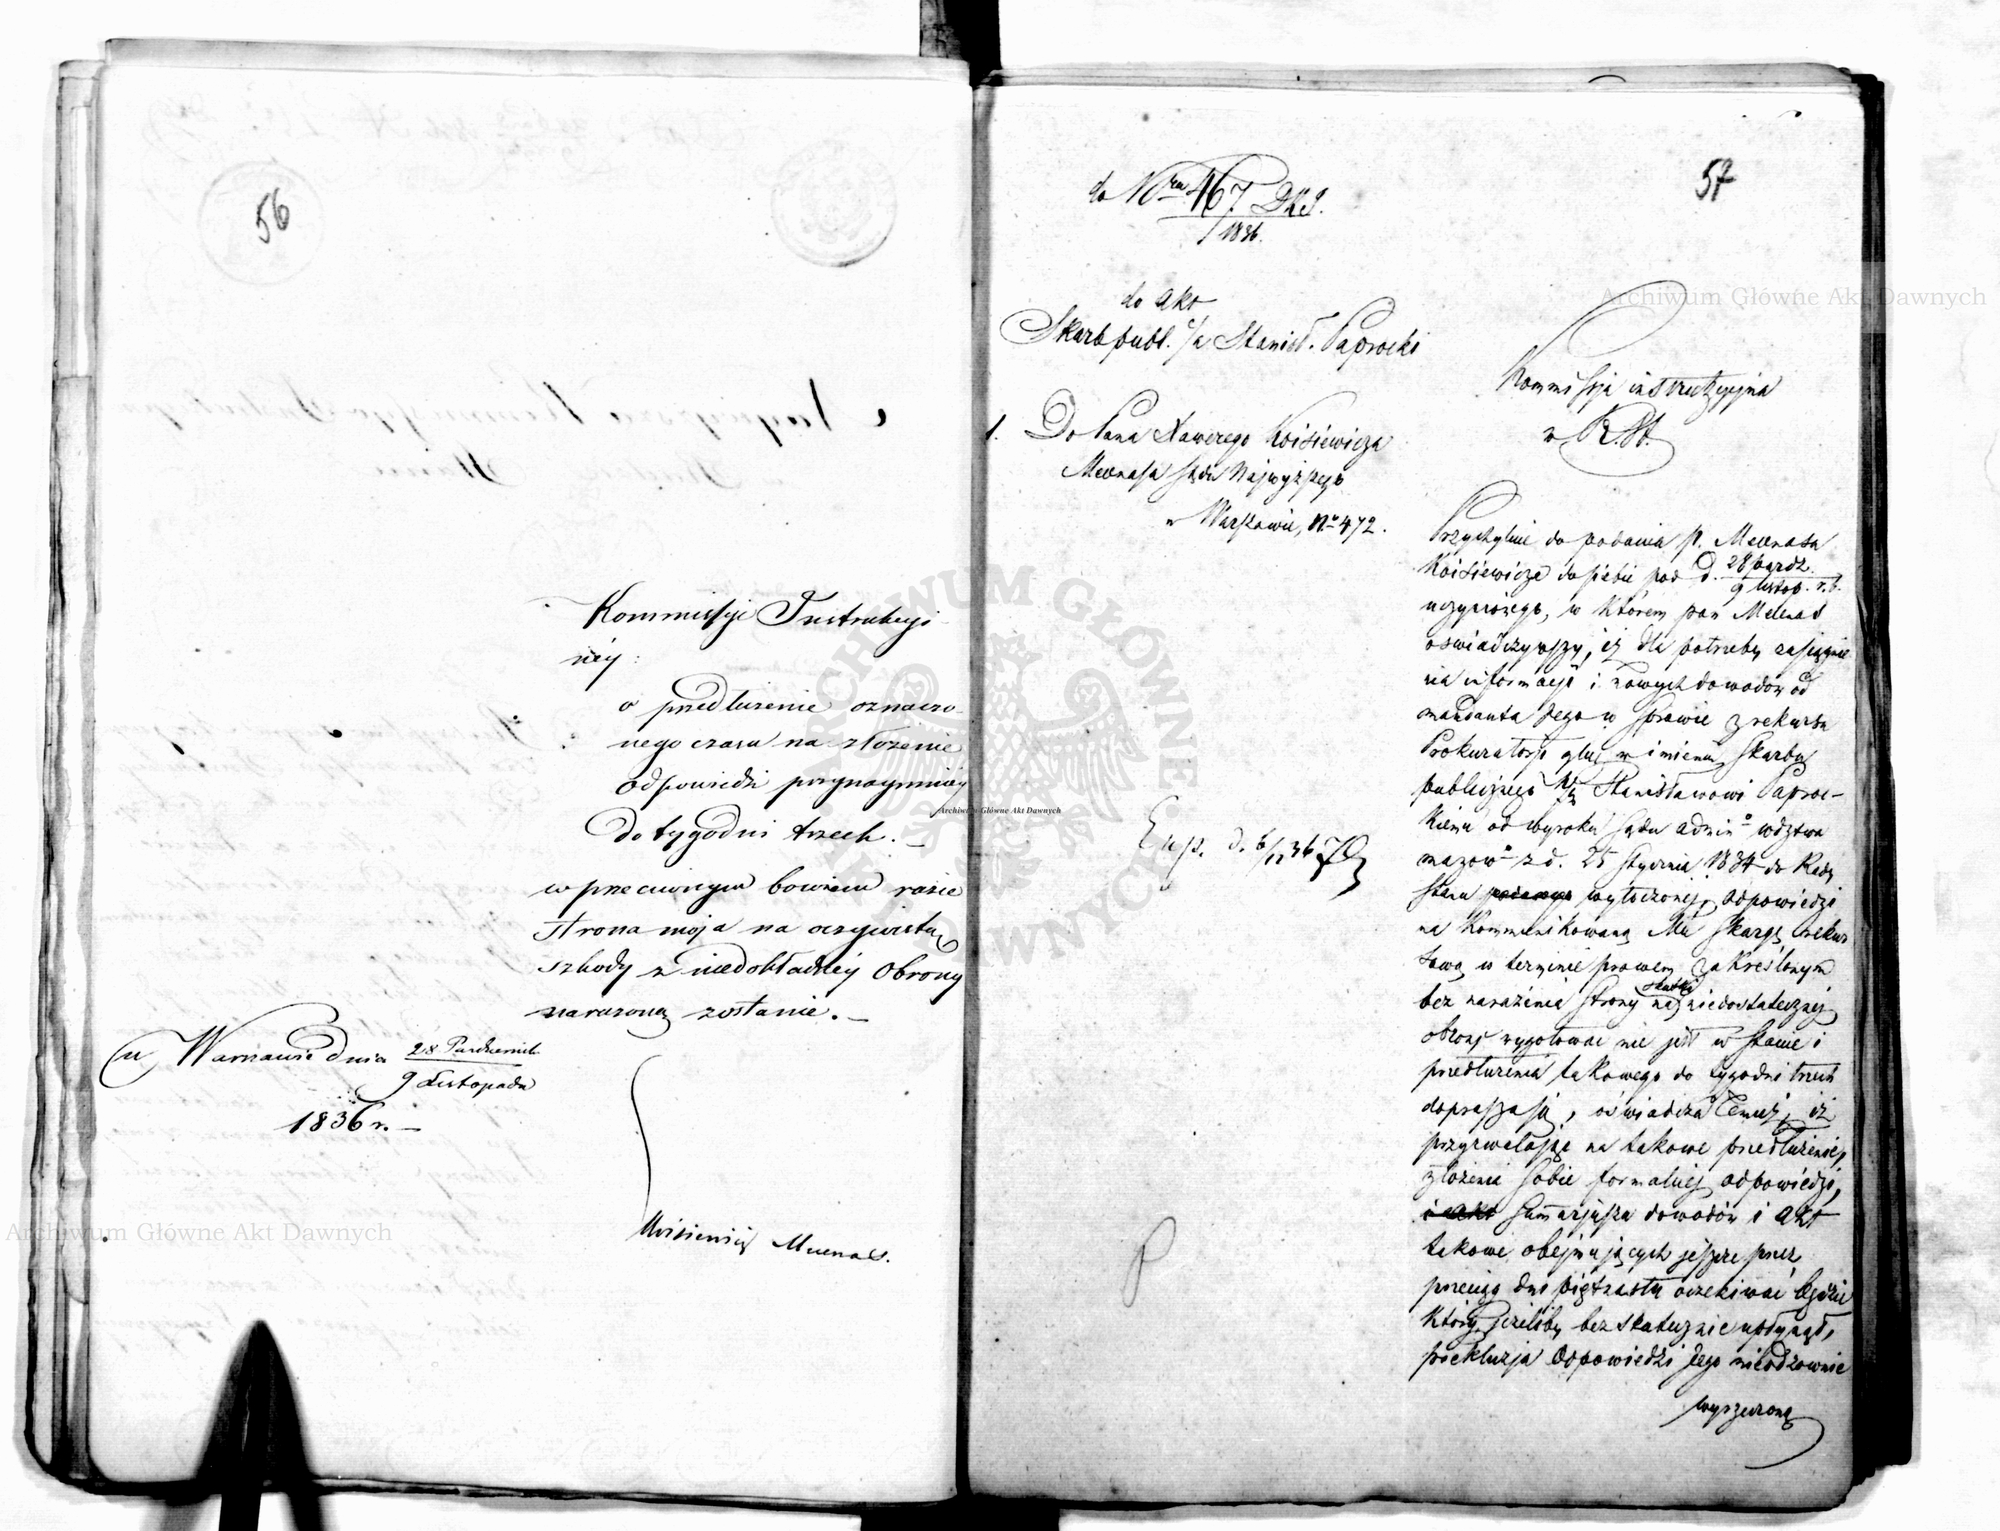 56
Kommissyi Instrukcyi-
néy:
o przedłużenie oznaczo-
nego czasu na złożenie
odpowiedzi przynaymniéy
do tygodni trzech. —
w przeciwnym bowiem razie
strona moja na oczywistą
szkody z niedokładnéy obrony
narażoną zostanie. —
w Warszawie dnia 28 Październik
9 Listopada
1836 r. —
Koisiewicz Mecenas.
57
do Nru 467
1836.
do akt
Skarb publ. c/a Stanisł. Paprocki
1. Do Pana Xawerego Koisiewicza
Mecenasa Sądu Najwyższego
w Warszawie, No 472.
Exp. d. 6/12 36
Kommissja instrukcyjna
w R. St.
Przychylnie do podania p. Mecenasa
Koisiewicza do siebie pod d. 28 paźdz.
9 listop. r. b.
uczynionego, w którem pan Mecenas
oświadczywszy, iż dla potrzeby zasiągnie-
nia informacji i nowych dowodów od
mandanta Jego w sprawie z rekursu
Prokuratorji głnej w imieniu Skarbu
publicznego Stanisławowi Paproc-
kiemu od wyroku Sądu admin° wdztwa
mazow° z d. 25 stycznia 1834 do Rady
Stanu wytoczonej, odpowiedzi
na kommunikowaną Mu skargę rekur-
sową w terminie prawem zakreślonym
bez narażenia strony na skutki niedostatecznej
obrony wygotować nie jest w stanie i
przedłużenia takowego do tygodni trzech
doprasza się, oświadcza Temuż, iż
przyzwalając na takowe przedłużenie,
złożenia sobie formalnej odpowiedzi,
i akt summarjusza dowodów i akt
takowe obejmujących jeszcze przez
przeciąg dni piętnastu oczekiwać będzie
który jeżeliby bezskutecznie upłynął,
prekluzja odpowiedzi Jego nieodzownie
wyrzeczoną
Archiwum Główne Akt Dawnych
Archiwum Główne Akt Dawnych
Archiwum Główne Akt Dawnych
ARCHIWUM GŁÓWNE AKT DAWNYCH